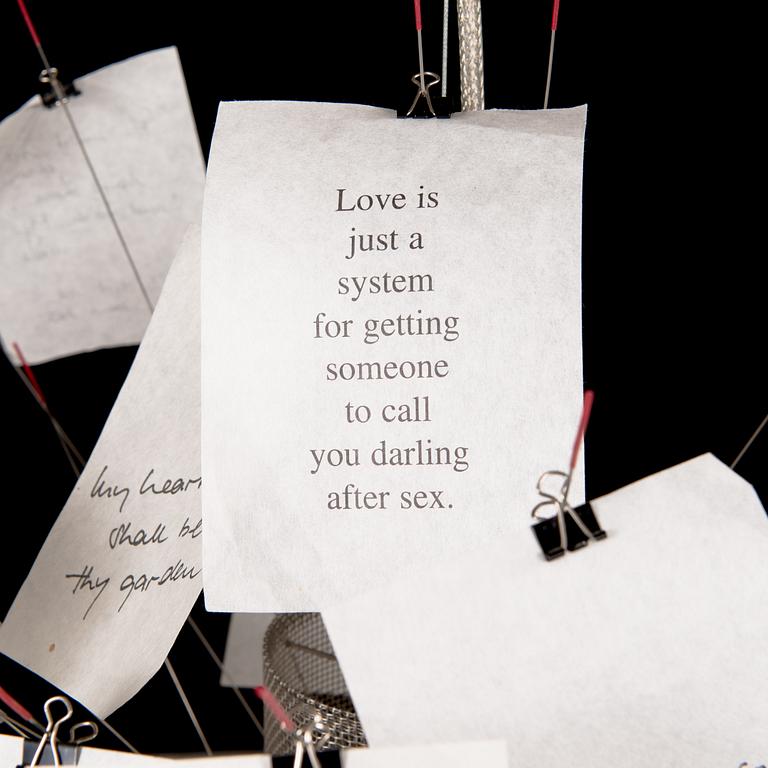 Love is
just a
system
for getting
someone
to call
you darling
after sex.
My heart
shall be
thy garden